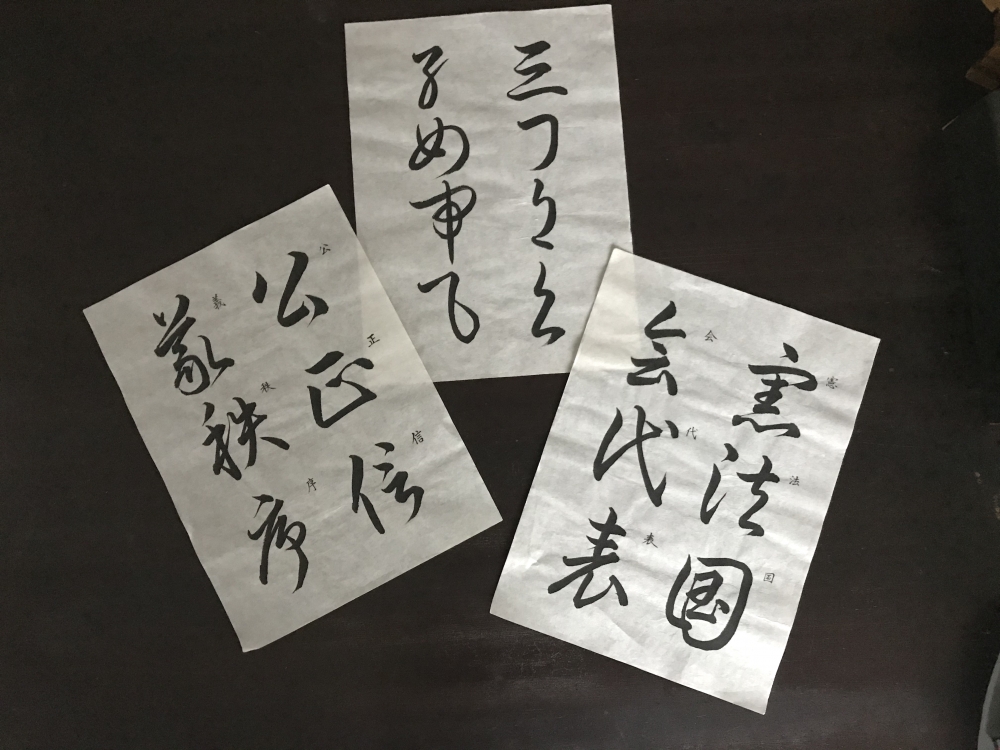 三
子
申
公正信
公正信
義秩序
義秩序
憲法国
憲法国
会代表
会代表